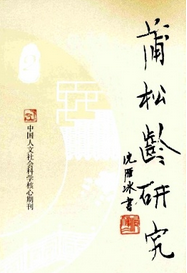 蒲松龄研究
沈雁冰书
中国人文社会科学核心期刊